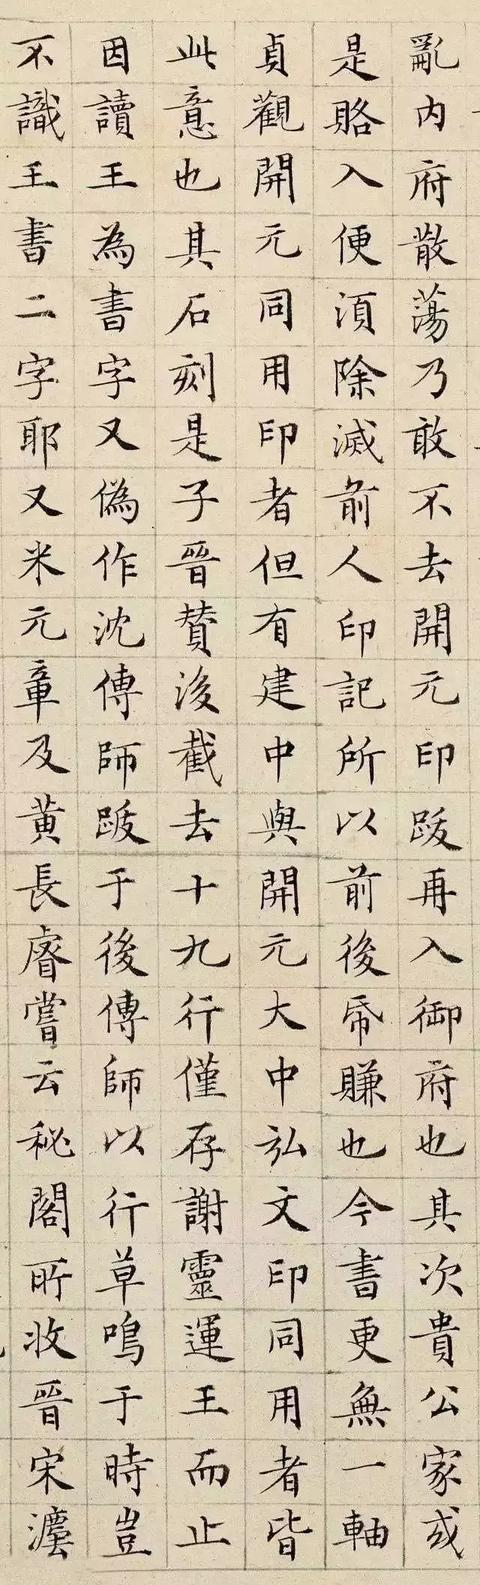 亂内府散蕩乃敢不去開元印跋再入御府也其次貴公家或
是賂入便湏除滅前人印記所以前後帋賺也今書更無一軸
貞觀開元同用印者但有建中與開元大中弘文印同用者皆
此意也其石刻是子晉贊後截去十九行僅存謝靈運王而止
因讀王為書字又偽作沈傳師跋于後傳師以行草鳴于時豈
不識王書二字耶又米元章及黄長睿嘗云秘閣所收晉宋灋